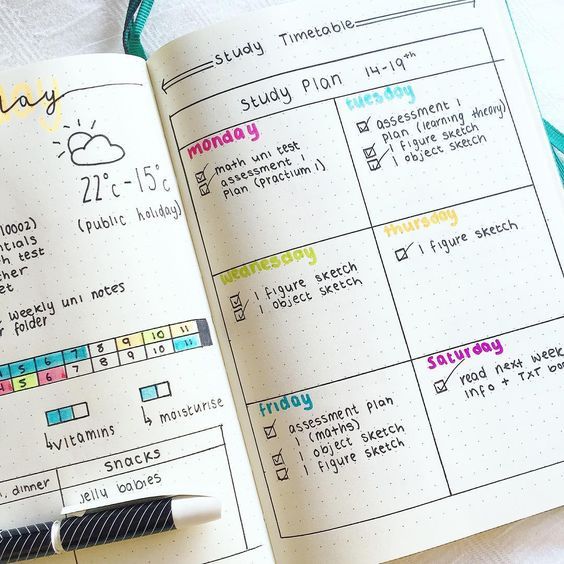 day
22°c - 15°c
(public holiday)
10002)
weekly uni notes
folder
5 6 7 8 9 10 11
4 5 6 7 8 9 10 11
vitamins
moisturise
snacks
dinner
jelly babies
Study Timetable
Study Plan 14-19th
monday
math uni test
assessment 1
plan (practium 1)
tuesday
assessment 1
plan (learning theory)
1 figure sketch
1 object sketch
wednesday
1 figure sketch
1 object sketch
thursday
1 figure sketch
friday
assessment plan
1 (maths)
1 object sketch
1 figure sketch
saturday
read next week
info + TXT